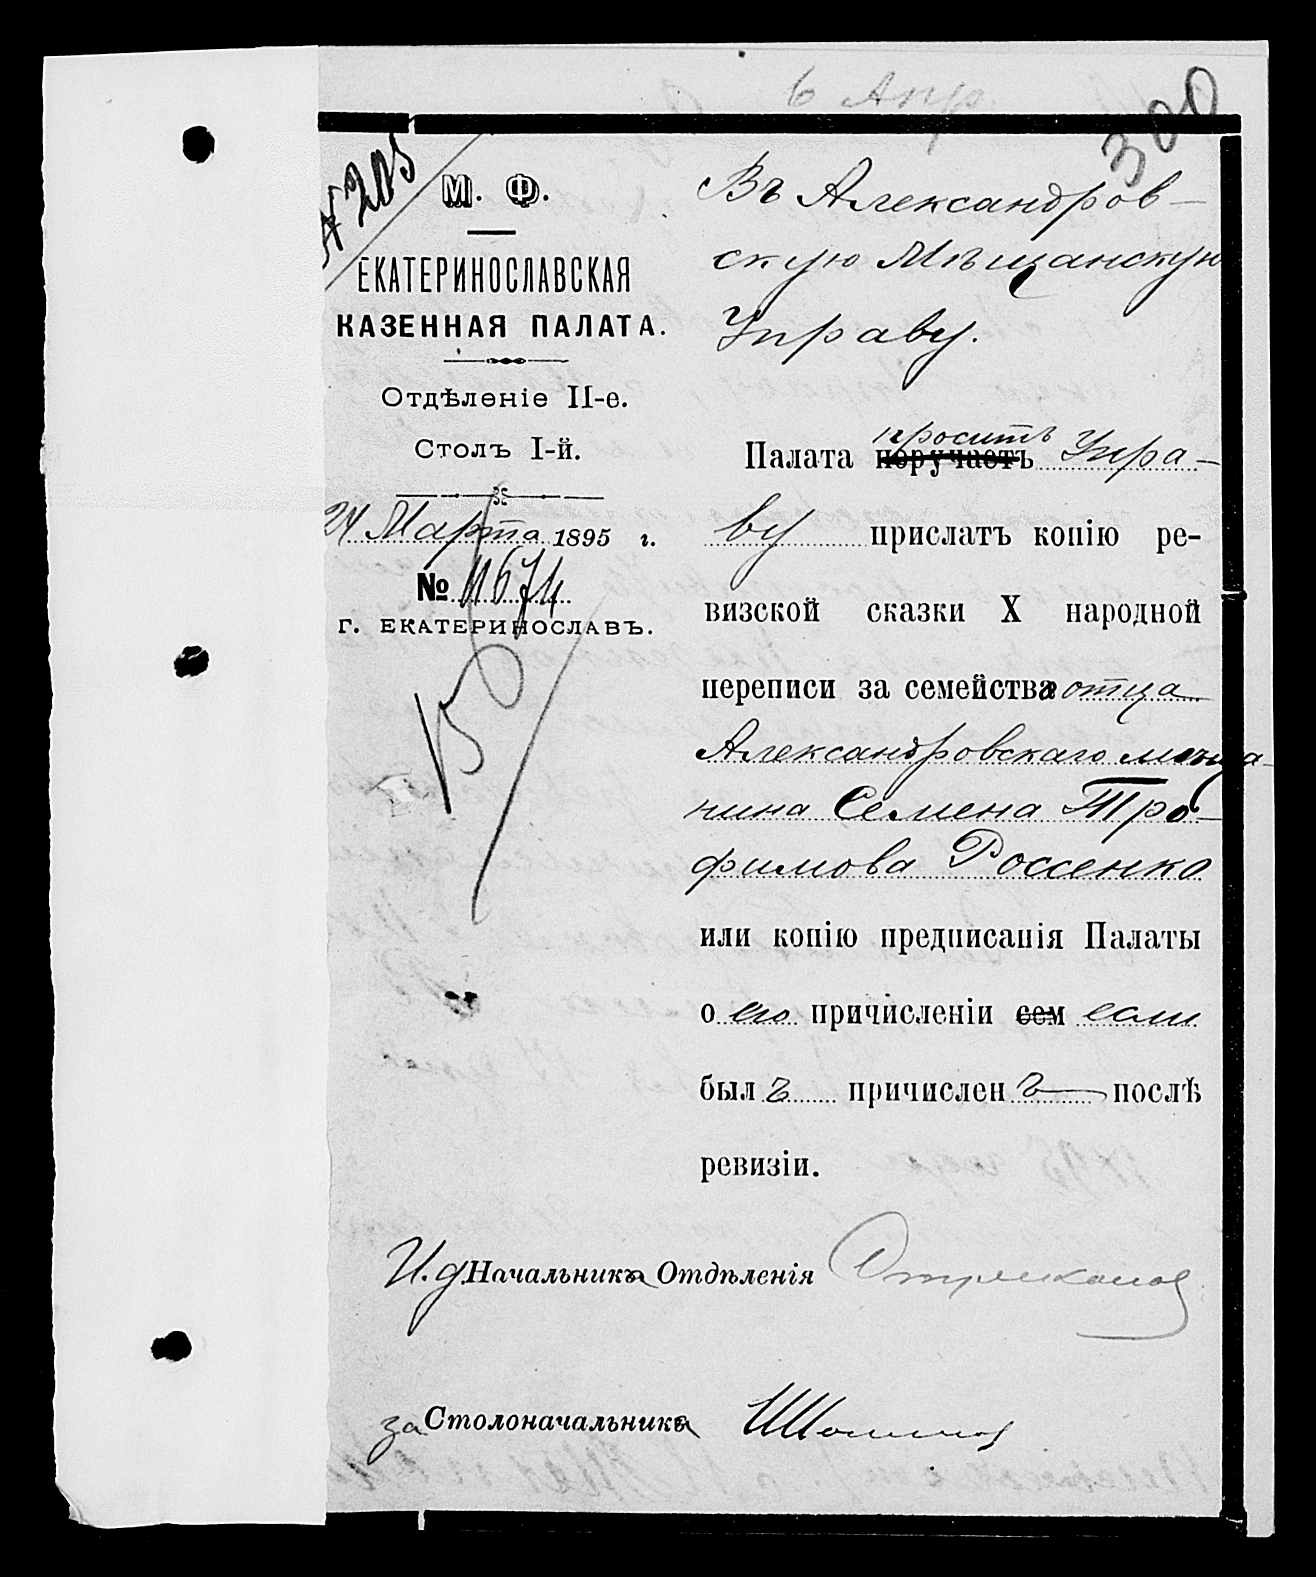 6 Апр.
300
№ 205
М. Ф.
ЕКАТЕРИНОСЛАВСКАЯ
КАЗЕННАЯ ПАЛАТА.
Отдѣленіе II-е.
Столъ I-й.
24 Марта 1895 г.
№ 11674
Г. ЕКАТЕРИНОСЛАВЪ.
Въ Александров-
скую Мѣщанскую
Управу.
проситъ
Палата поручаетъ Упра-
ву прислать копію ре-
визской сказки X народной
переписи за семейства отца
Александровскаго мѣща-
нина Семена Тро-
фимова Россенко
или копію предписанія Палаты
о его причисленіи сем если
былъ причисленъ послѣ
ревизіи.
И.д. Начальника Отдѣленія
за Столоначальника